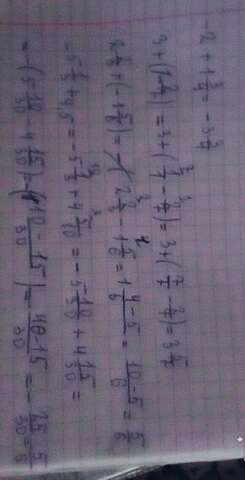 -2 + 1 3/4 = -3 3/4
3 + (1 - 2/7) = 3 + (7/7 - 2/7) = 3 + (7/7 - 2/7) = 3 5/7
2 2/3 + (-1 5/6) = -(2 2/3 - 1 5/6 = 1 4-5/6 = 10-5/6 = 5/6
-5 1/3 + 4,5 = -5 1/3 + 4 5/10 = -5 10/30 + 4 15/30 =
= -(5 10/30 4 15/30) = (10-15/30) = 40-15/30 = - 25/30 = 5/6